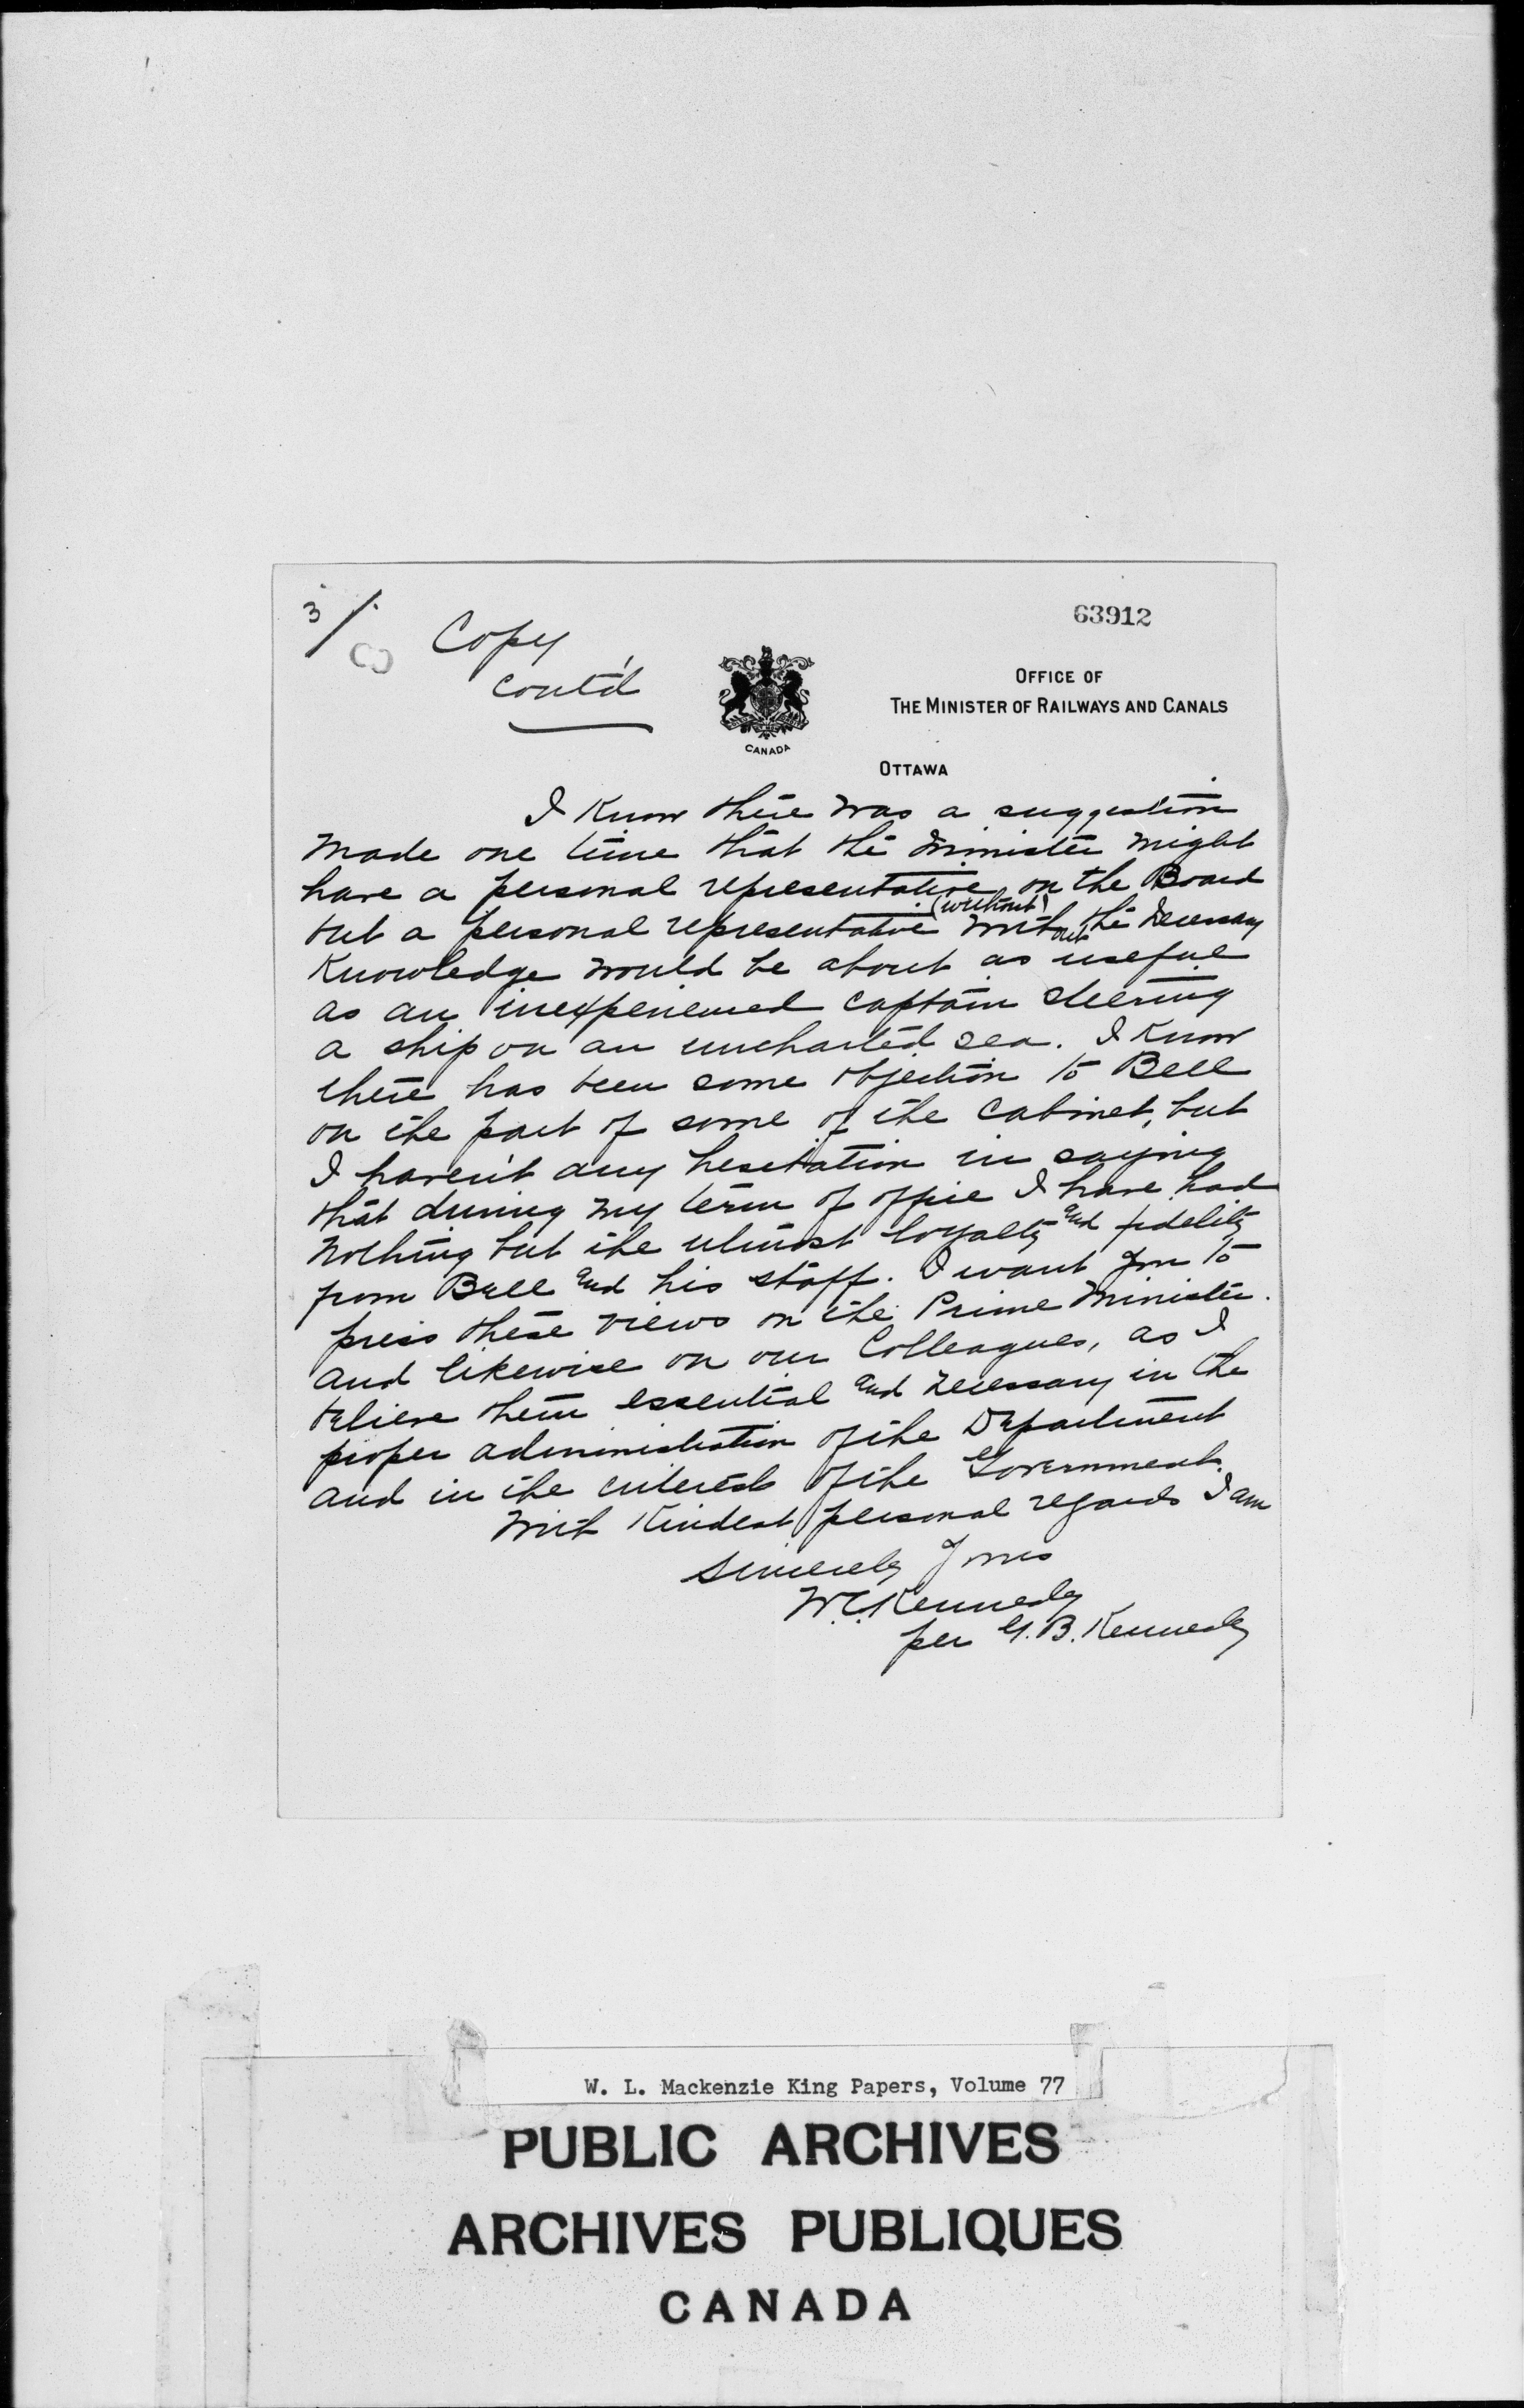 3/.
Copy
cont'd
63912
CANADA
OFFICE OF
THE MINISTER OF RAILWAYS AND CANALS
OTTAWA
I know there was a suggestion
made one time that the Minister might
have a personal representative on the Board
but a personal representative (without) without the necessary
knowledge would be about as useful
as an inexperienced captain steering
a ship on an uncharted sea. I know
there has been some objection to Bell
on the part of some of the Cabinet, but
I haven't any hesitation in saying
that during my term of office I have had
nothing but the utmost loyalty and fidelity
from Bell and his staff. I want you to
press these views on the Prime Minister.
and likewise on our Colleagues, as I
believe them essential and necessary in the
proper administration of the Department
and in the interests of the Government.
With kindest personal regards I am
Sincerely Yours
W.C. Kennedy
per G.B. Kennedy
W. L. Mackenzie King Papers, Volume 77
PUBLIC ARCHIVES
ARCHIVES PUBLIQUES
CANADA